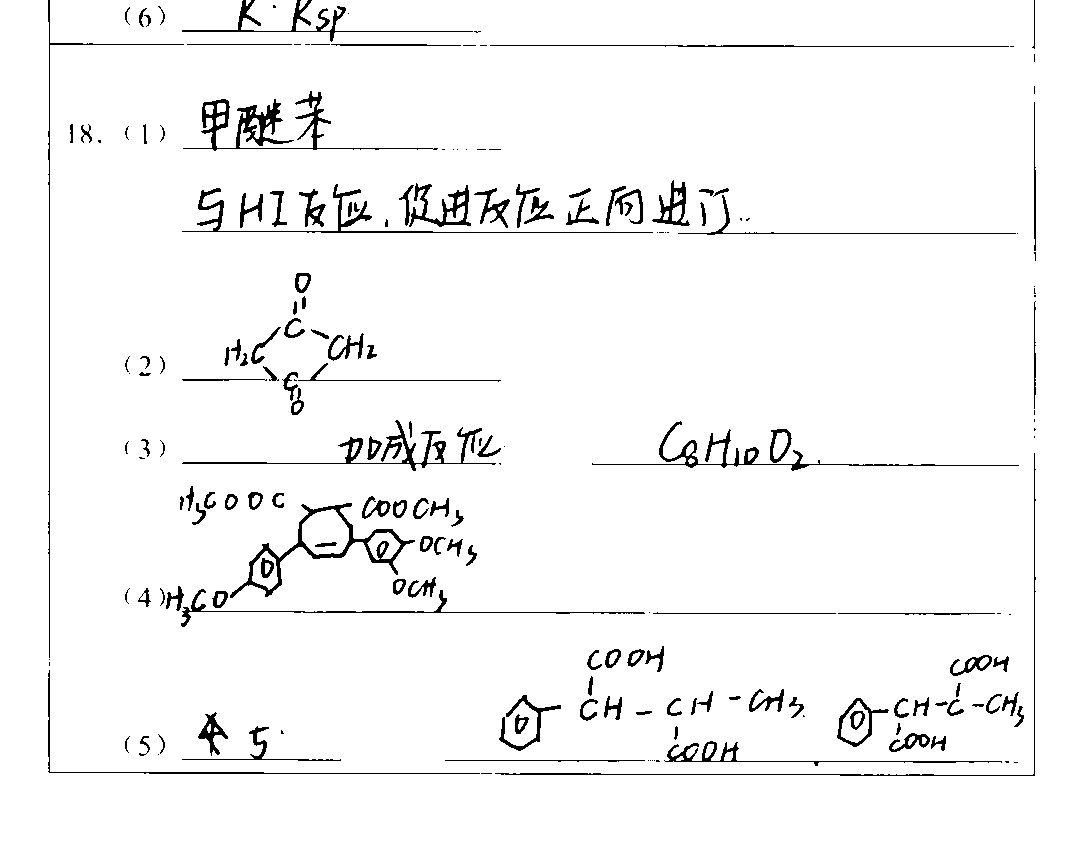 (6) K·Ksp
18. (1) 甲醚苯
与HI反应,促进反应正向进行..
O
C
H₂C CH₂
(2) C
O
(3) 加成反应 C₈H₁₀O₂.
H₃COOC COOCH₃
OCH₃
OCH₃
(4) H₃CO
COOH COOH
CH-CH-CH₃ CH-C-CH₃
(5) 5 COOH COOH